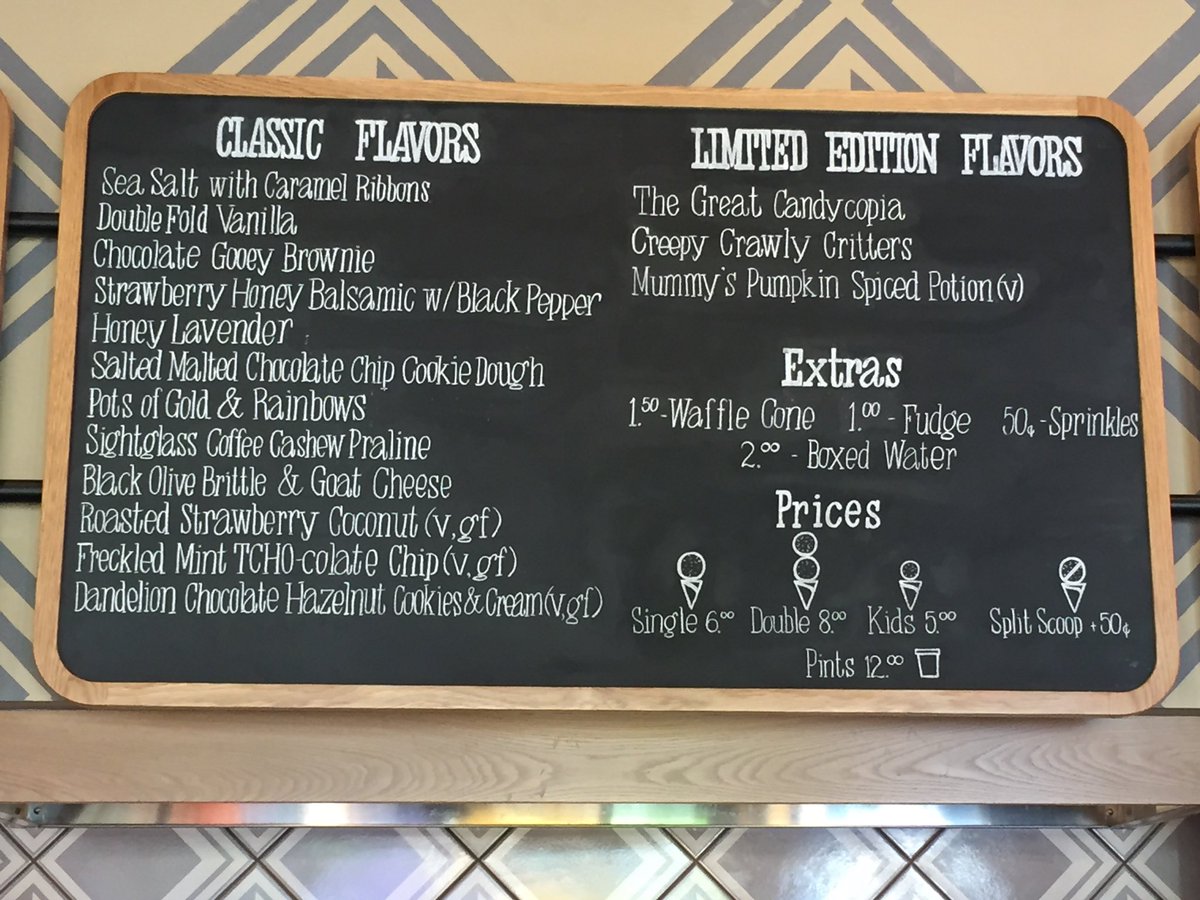 CLASSIC FLAVORS
Sea Salt with Caramel Ribbons
Double Fold Vanilla
Chocolate Gooey Brownie
Strawberry Honey Balsamic w/ Black Pepper
Honey Lavender
Salted Malted Chocolate Chip Cookie Dough
Pots of Gold & Rainbows
Sightglass Coffee Cashew Praline
Black Olive Brittle & Goat Cheese
Roasted Strawberry Coconut (v,gf)
Freckled Mint TCHO-colate Chip (v,gf)
Dandelion Chocolate Hazelnut Cookies & Cream (v,gf)
LIMITED EDITION FLAVORS
The Great Candycopia
Creepy Crawly Critters
Mummy's Pumpkin Spiced Potion (v)
Extras
1.50-Waffle Cone 1.00 - Fudge 50¢-Sprinkles
2.00 - Boxed Water
Prices
Single 6.00 Double 8.00 Kids 5.00 Split Scoop +50¢
Pints 12.00